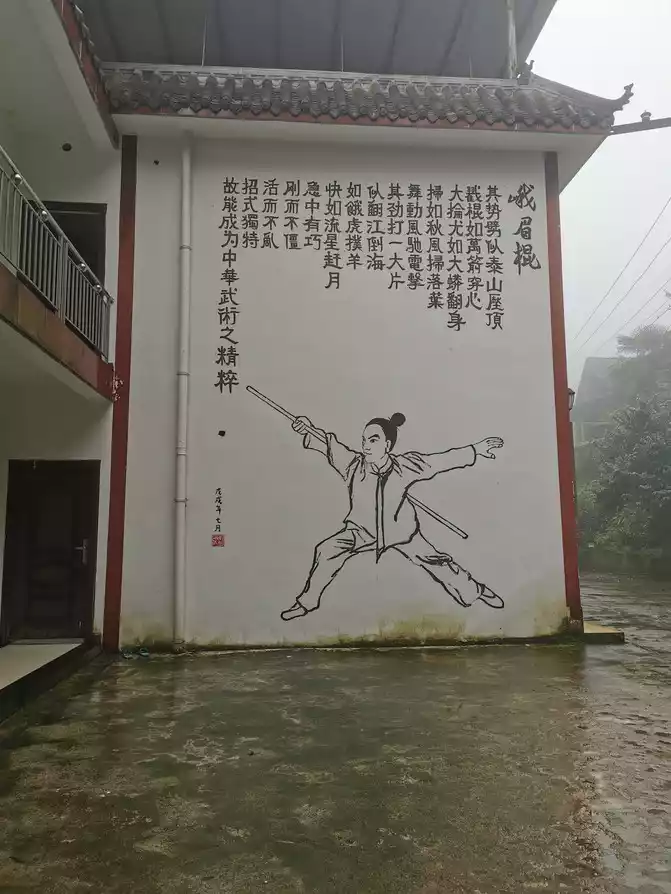 峨眉棍
其势劈臥泰山座頂
戳棍如萬箭穿心
大掄尤如大蟒翻身
掃如秋風掃落葉
舞動風馳電擊
其劲打一大片
臥翻江倒海
如餓虎撲羊
快如流星赶月
急中有巧
刚而不僵
活而不亂
招式獨特
故能成为中華武術之精粹
戊戌年七月